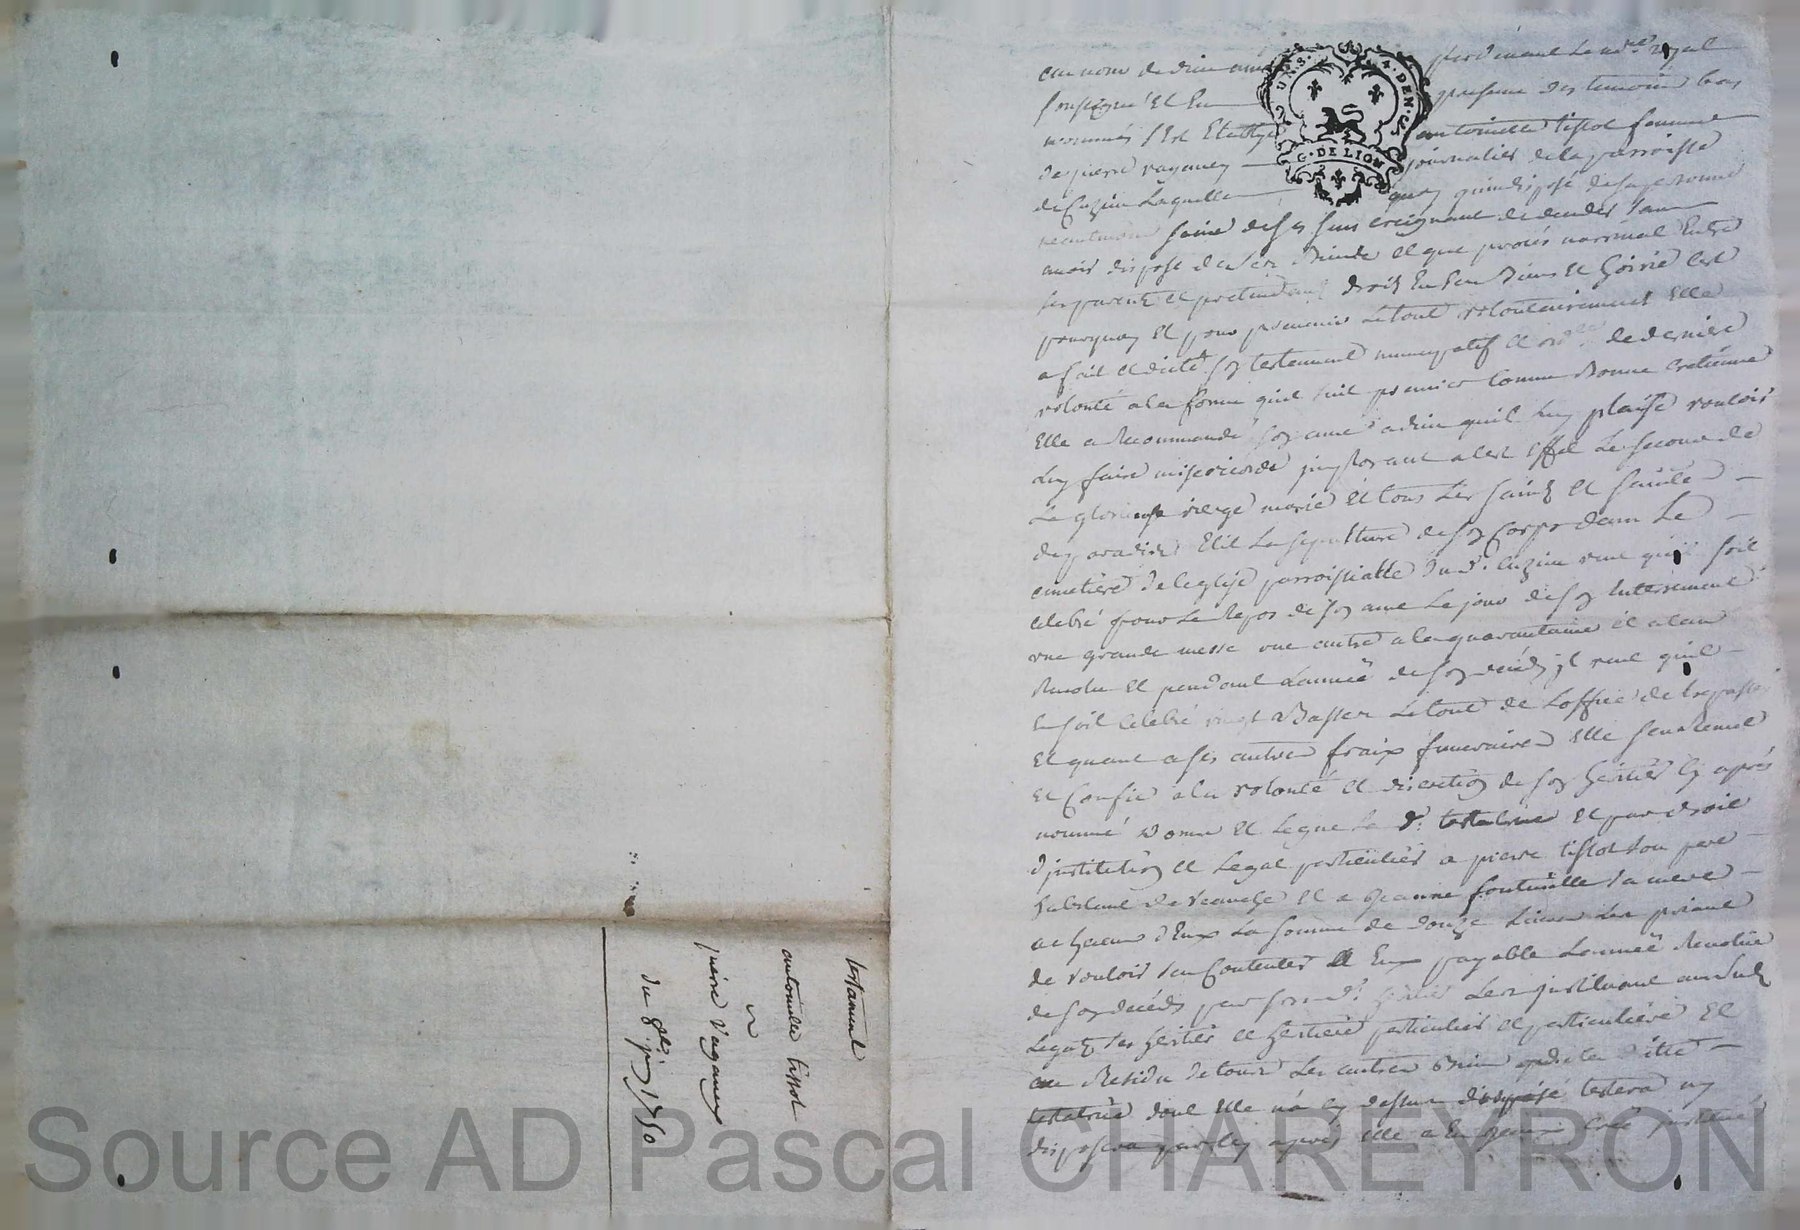 testament
antoinette tissot
pierre vaganay
du 8e juin 1750
au nom de dieu amen
pardevant le nore royal
soussigné et en
presence des temoins bas
nommés s'est etablye
antoinette tissot femme
de pierre vaganay
journalier de la parroisse
de Cuzieu laquelle
quoy qu'indisposé de sa personne
saine de ses sens creignant de deceder sans
avoir disposé de ses biends et que procés
ses parents et pretendants droit en ses biens et hoirie c'est
pourquoy et pour prevenir le tout volontairement elle
a fait et dicté son testament nuncupatif et de derniere
volonté a la forme qu'il suit premier comme bonne cretienne
elle a recommandé son ame a dieu qu'il luy plaise vouloir
luy faire misericorde implorant a cest effet le secours de
la glorieuse vierge marie et tous les saints et sainte
de paradis elit la sepulture de son corps dans le
cimetière de l'eglise parroissialle dud. Cuzieu veut qu'il soit
celebré pour le repos de son ame le jour de son enterrement
une grande messe une autre a la quarantaine et a l'an
revolu et pendant l'année de son decéds il veut qu'il
en soit celebré vingt basses le tout de l'office de trepassés
et quant a ses autres fraix funeraires elle s'en remet
et confie a la volonté et discretion de son heritier cy après
nommé donne et legue la d. testatrice et par droit
d'institution et legat particulier a pierre tissot son pere
habitant de veauche et a jeanne sa mere
a chacun d'eux la somme de douze livres les priant
de vouloir s'en contenter et eux payable l'année revolue
de son decéds par son d. heritier les instituant auxdits
legats ses heritier et heritiere particulier et particuliere et
au residu de tous les autres biens de la ditte
testatrice dont elle n'a cy dessus disposé testera ny
disposera par cy après elle a